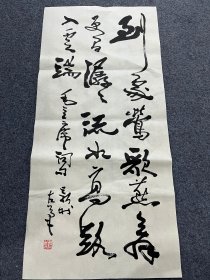 到处莺歌燕舞
更有潺潺流水高路
入云端
毛主席词句